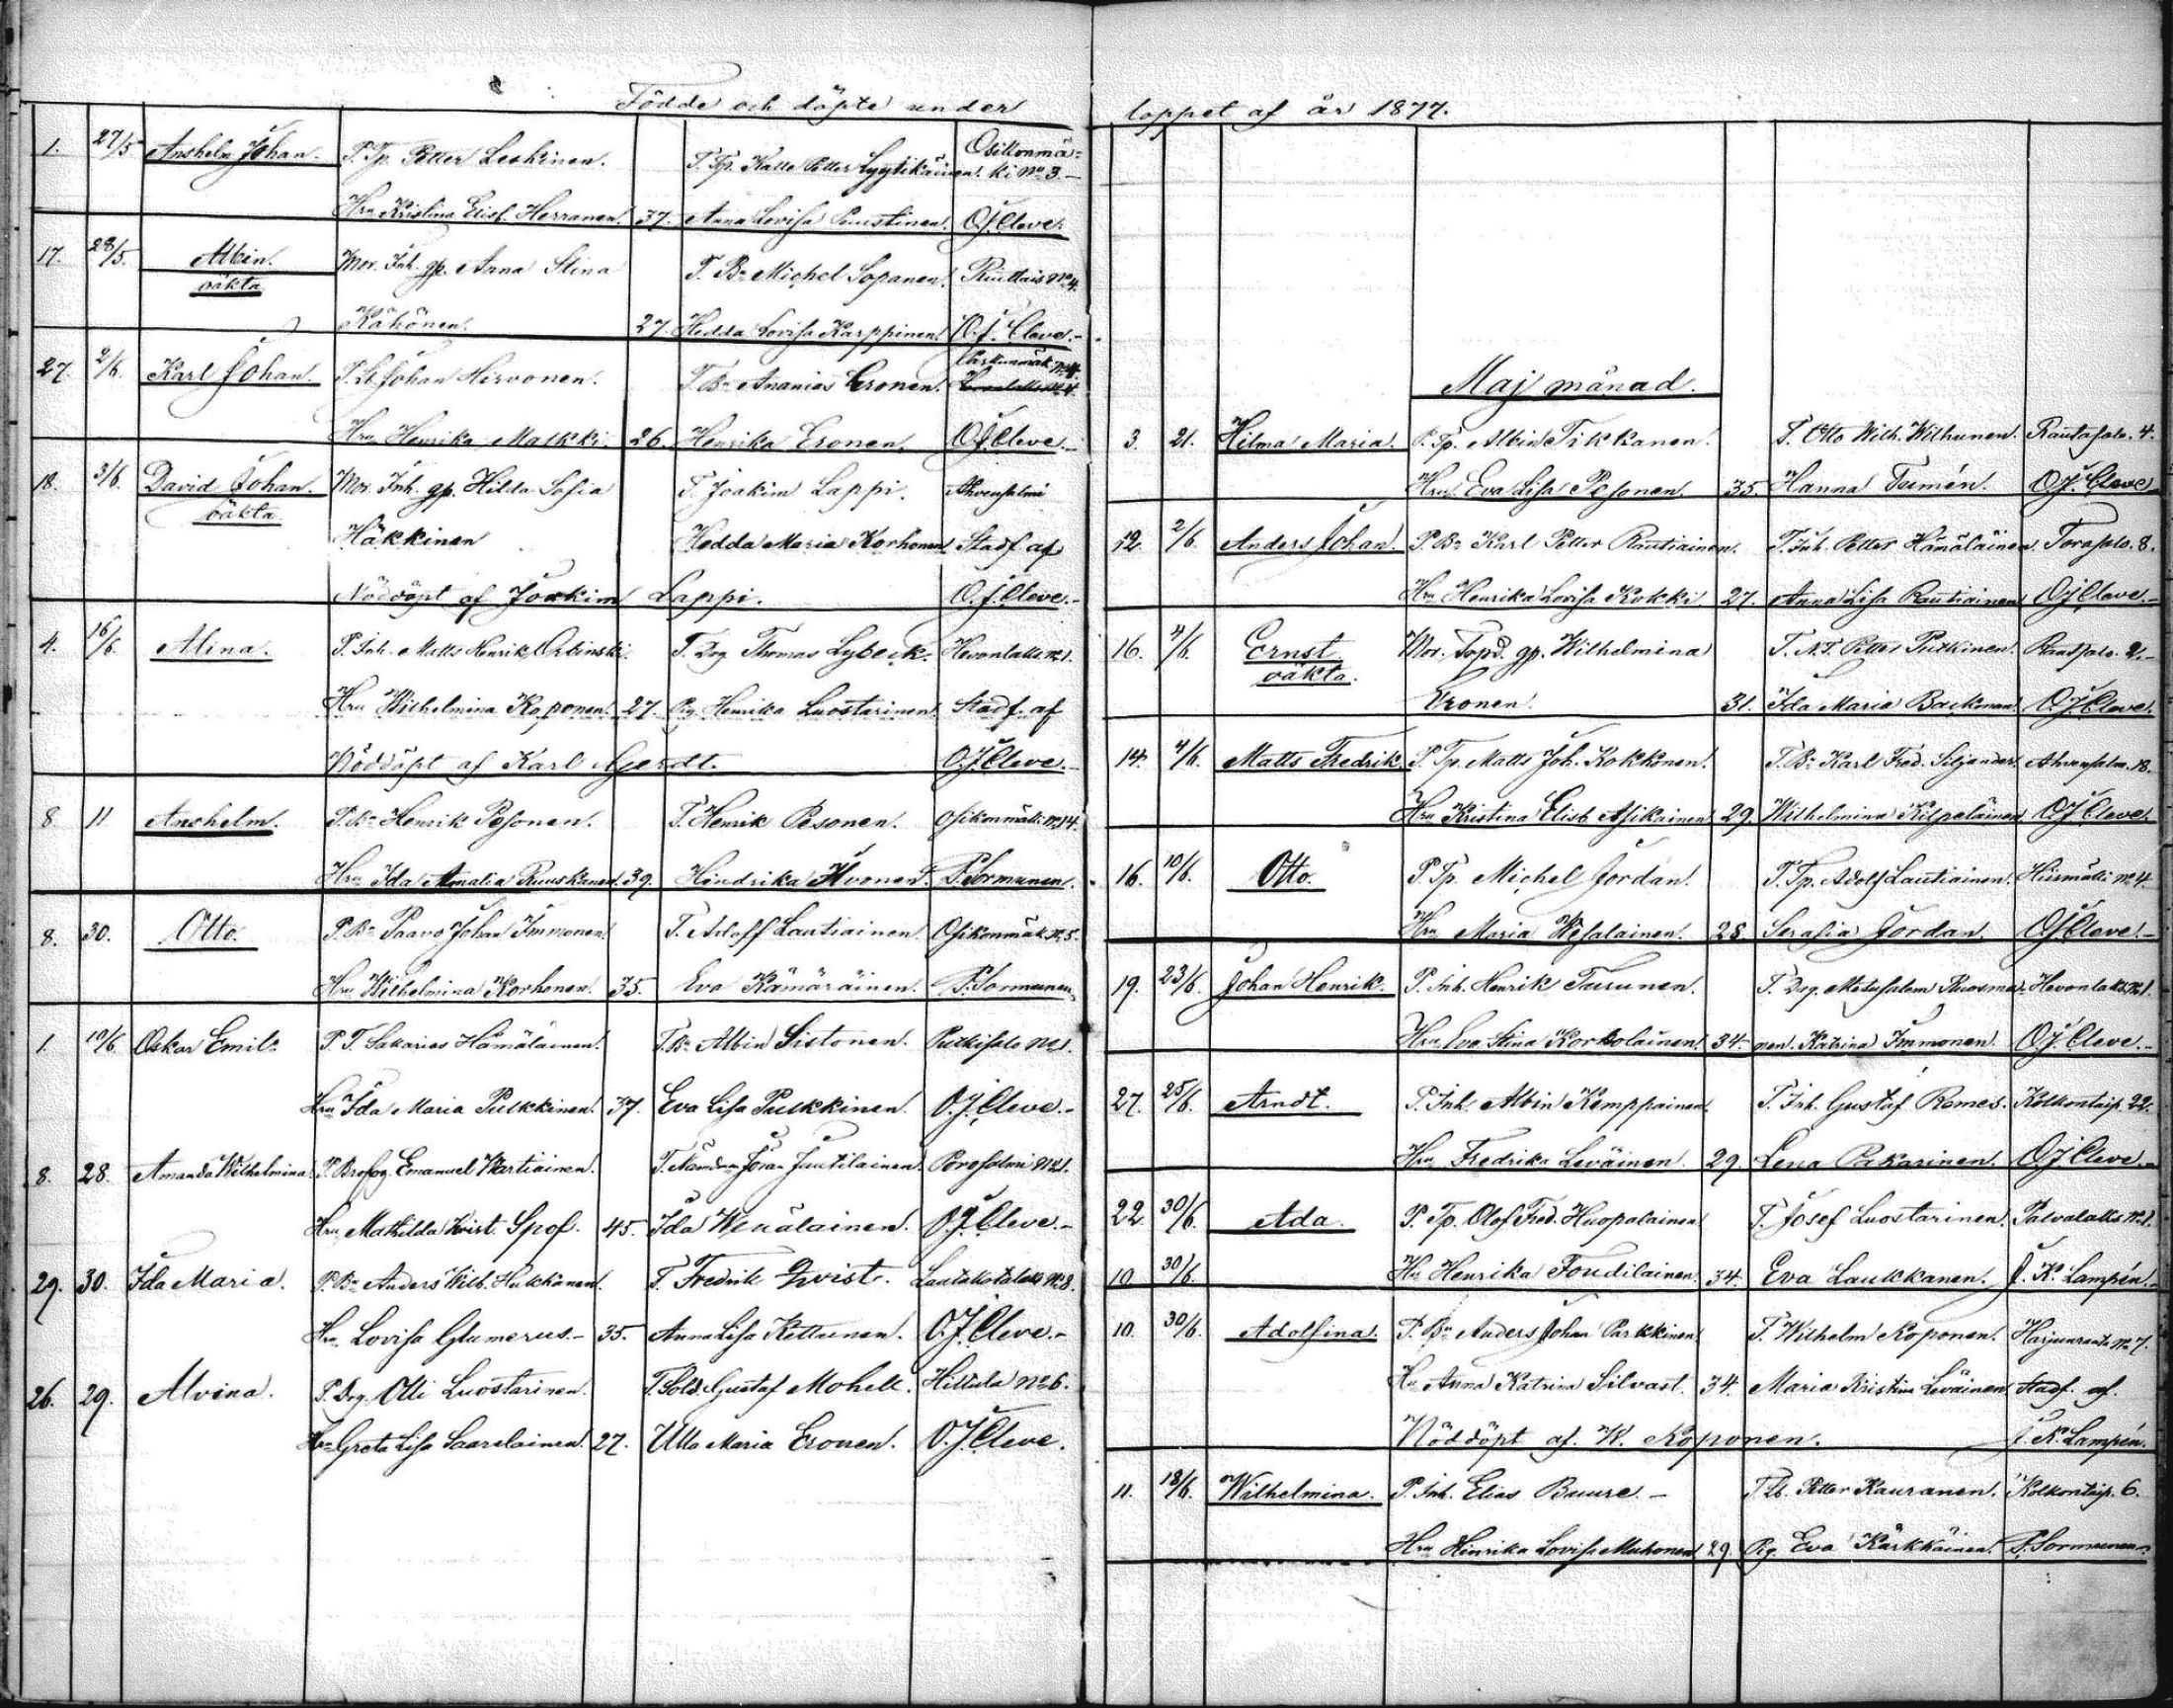 Födde och döpte under
1. 27/5 Anshelm Johan. P. Tp. Petter Leskinen. T. Tp. Kalle Petter Lyytikäinen. Osikonmä-
ki No 3.
Hru Kristina Elisb. Herranen. 37. Anna Lovisa Puustinen. O.J. Cleve.
17. 28/5. Albin. Mor. Inh. gp. Anna Stina T. Bn Michel Sopanen. No 4.
oäkta
Kähönen. 27. Hedda Lovisa Karppinen. O.J. Cleve.
27. 2/6. Karl Johan. P. Lb. Johan Hirvonen. T. Bn Ananias Eronen. No 4.
Hru Henrika Malkki. 26. Henrika Eronen. O.J. Cleve.
18. 3/6. David Johan. Mor. Inh. gp. Hilda Sofia T. Joakim Lappi. Ahvensalmi
oäkta
Häkkinen Hedda Maria Korhonen. Stadf. af
Nöddöpt af Joakim Lappi. O.J. Cleve.
4. 16/6. Alina. P. Inh. Matts Henrik Orbinski. T. Drg Thomas Lybeck. Hevonlaks No 1.
Hru Wilhelmina Koponen. 27. Pig. Henrika Luostarinen. Stadf. af
Nöddöpt af Karl Gerdt. O.J. Cleve.
8 11 Anshelm. P. Bn Henrik Pesonen. T. Henrik Pesonen. Osikonmäki No 14.
Hru Ida Amalia Ruuskanen. 39. Hendrika Ikonen. P. Sormunen.
8. 30. Otto. P. Bn Paavo Johan Immonen. T. Adolf Lautiainen. Osikonmäk. No 5.
Hru Wilhelmina Korhonen. 35. Eva Kämäräinen. P. Sormunen.
1. 10/6 Oskar Emil. P. T. Sakarias Hämäläinen. T. Bn Albin Sistonen. Putkisalo No 1.
Hru Ida Maria Pulkkinen. 37. Eva Lisa Pulkkinen. O.J. Cleve.
8. 28. Amanda Wilhelmina. P. Emanuel Wartiainen. T. Jöran Juutilainen. Porosalmi No 1.
Hru Mathilda Krist. Spof. 45. Ida Wenäläinen. O.J. Cleve.
29. 30. Ida Maria. P. Bn Anders Wilh. Hukkanen. T. Fredrik Qvist. No 8.
Hru Lovisa Glumerus. 35. Anna Lisa Kettunen. O.J. Cleve.
26. 29. Alvina. P. Drg. Olli Luostarinen. T. Sold. Gustaf Mohell. Hiltula No 6.
Hru Greta Lisa Saarelainen. 27. Ulla Maria Eronen. O.J. Cleve.
loppet af år 1877.
Maj månad.
3. 21. Hilma Maria. P. Tp. Albin Tikkanen. T. Otto Wilh. Wilhunen. Rantasalo. 4.
Hru Eva Lisa Pesonen. 35. Hanna Temén. O.J. Cleve
12. 2/6. Anders Johan. P. Bn Karl Petter Rautiainen. T. Inh. Petter Hämäläinen. Torasalo. 8.
Hru Henrika Lovisa Kokki 27. Anna Lisa Rautiainen O.J. Cleve.
16. 4/6. Ernst. Mor. gp. Wilhelmina T. N.T. Petter Putkinen. Rantsalo. 2.
oäkta.
Eronen. 31. Ida Maria Backman. O.J. Cleve.
14. 4/6. Matts Fredrik. P. Tp. Matts Joh. Kokkonen. T. Bn Karl Fred. Siljander. Ahvensalm. 18.
Hru Kristina Elisb. Asikainen 29. Wilhelmina Kilpeläinen O.J. Cleve.
16. 10/6. Otto. P. Tp. Michel Jordan. T. Tp. Adolf Lautiainen. Hiismäki No 4.
Hru Maria Wesalainen. 28. Serafia Jordan. O.J. Cleve.
19. 23/6. Johan Henrik. P. Inh. Henrik Turunen. T. Drg. Metusalem Ruosma- Hevonlaks No 1.
Hru Eva Stina Korholainen. 34. nen. Katrina Immonen. O.J. Cleve.
27. 25/6. Arndt. P. Inh. Albin Kemppainen. T. Inh. Gustaf Remes. Kolkontaip. 22.
Hru Fredrika Leväinen. 29. Lena Pakarinen. O.J. Cleve.
22 30/6. Ada. P. Tp. Olof Fred. Huopalainen T. Josef Luostarinen. No 1.
10 30/6. Hru Henrika Foudilainen. 34. Eva Laukkanen. J. K. Lampén.
10. 30/6. Adolfina. P. Bn Anders Johan Parkkinen. T. Wilhelm Koponen. Harjuranta No 7.
Hru Anna Katrina Silvast. 34. Maria Kristina Leväinen. Stadf. af.
Nöddöpt af. W. Koponen. J. K. Lampén.
11. 18/6. Wilhelmina. P. Inh. Elias Buure. T. Lb. Petter Kauranen. Kolkontaip. 6.
Hru Hinrika Lovisa Muhonen 29. Pig. Eva Kärkkäinen. P. Sormunen.